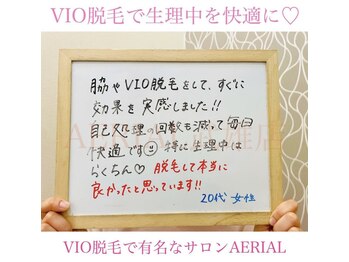 VIO脱毛で生理中を快適に♡
脇やVIO脱毛をして、すぐに
効果を実感しました!!
自己処理の回数も減って毎日
快適です☺ 特に生理中は
らくちん♡ 脱毛して本当に
良かったと思っています!!
20代 女性
VIO脱毛で有名なサロンAERIAL